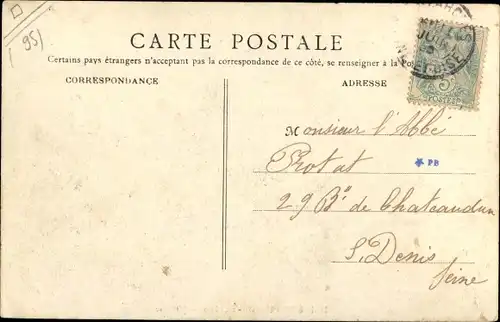 (95)
CARTE POSTALE
Certains pays étrangers n'acceptent pas la correspondance de ce côté, se renseigner à la Po
CORRESPONDANCE
ADRESSE
Monsieur l'Abbé
Protat
* PB
29 Bd de Chateaudun
S. Denis
Seine
5
POSTES